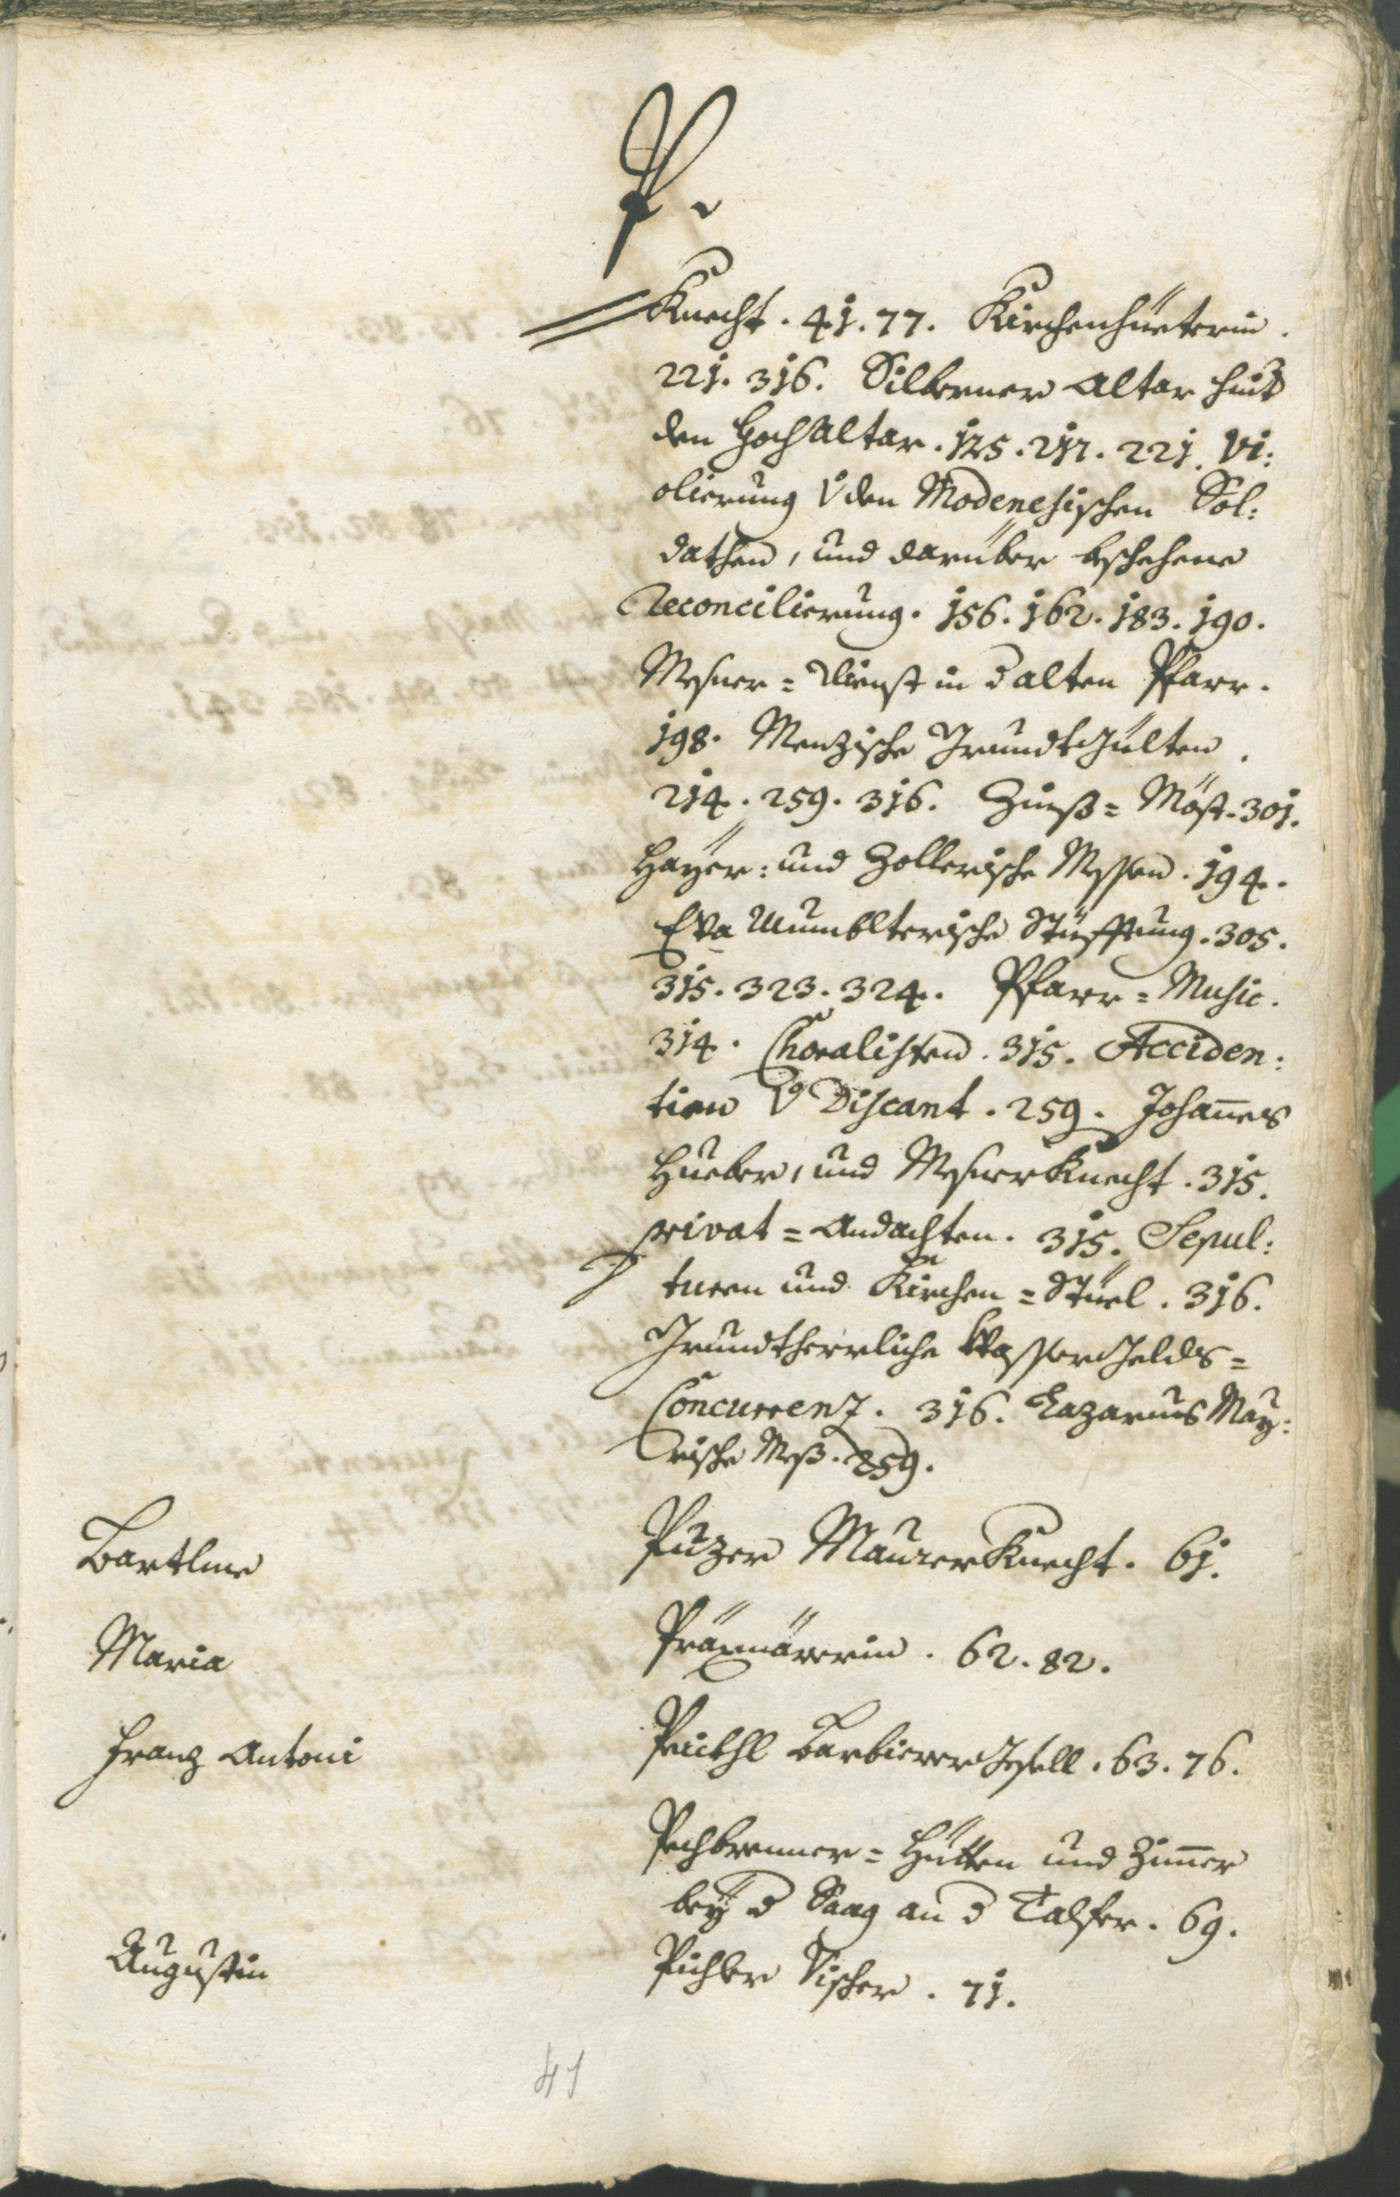 P.
Knecht. 41. 77. Kirchenhüeterin.
221. 316. Silberner Altar hint
den Hochaltar. 125. 217. 221. Vi:
olierung v den Modenesischen Sol:
dathen, und darüber bschehene
Reconcilierung. 156. 162. 183. 190.
Mesner=Dienst in d alten Pfarr.
198. Menzische Grundtgülten.
214. 259. 316. Zinß=Möst. 301.
Hayer: und Zollerische Messen. 194.
Eva Mumblterische Stüfftung. 305.
315. 323. 324. Pfarr=Music.
314. Choralisten. 315. Acciden:
tien v Discant. 259. Johannes
Hueber, und Mesner Knecht. 315.
privat=Andachten. 315. Sepul:
turen und Kirchen=Stüel. 316.
Grundtherrliche Wassergelds=
Concurrenz. 316. Lazarus May:
rische Meß. 259.
Bartlme Puzer Maurer Knecht. 61.
Maria 62. 82.
Franz Antoni Barbierer Gsell. 63. 76.
Pechbrenner=Hütten und Zimer
bey d Saag an d Talfer. 69.
Augustin Pichler Fischer. 71.
41